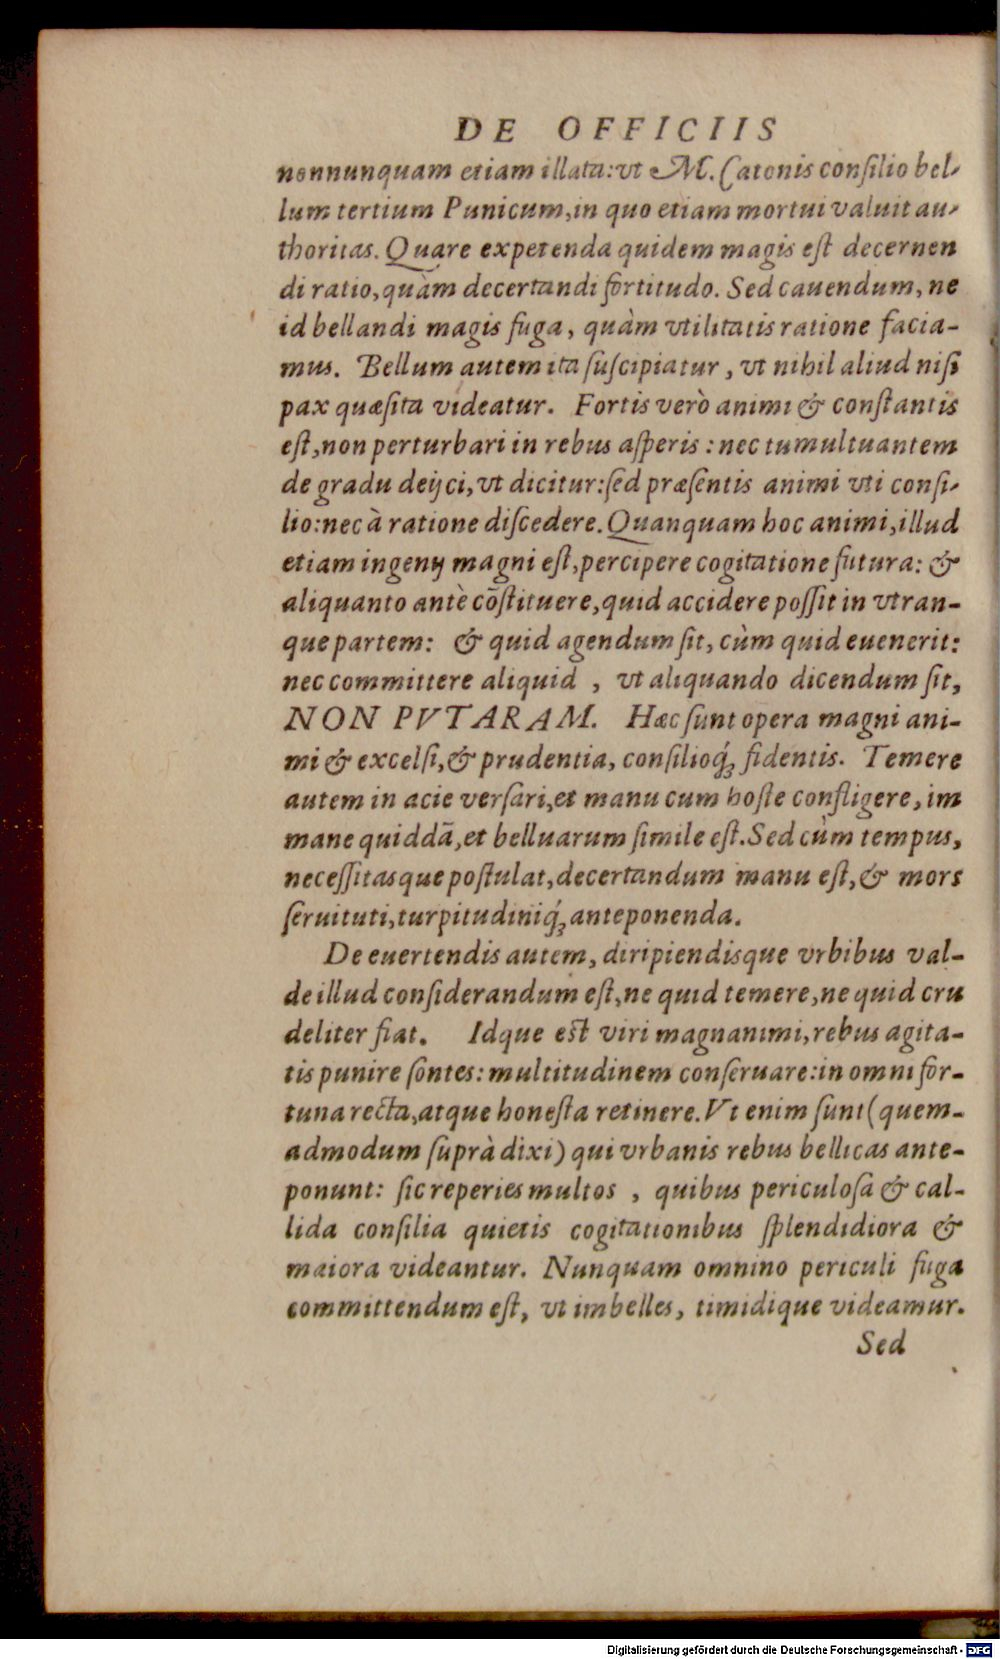 DE OFFICIIS
nonnunquam etiam illata: vt M. Catonis conſilio bel-
lum tertium Punicum, in quo etiam mortui valuit au-
thoritas. Quare expetenda quidem magis eſt decernen
di ratio, quàm decertandi fortitudo. Sed cauendum, ne
id bellandi magis fuga, quàm vtilitatis ratione facia-
mus. Bellum autem ita ſuſcipiatur, vt nihil aliud niſi
pax quæſita videatur. Fortis verò animi & conſtantis
eſt, non perturbari in rebus aſperis: nec tumultuantem
de gradu deijci, vt dicitur: ſed præſentis animi vti conſi-
lio: nec à ratione diſcedere. Quanquam hoc animi, illud
etiam ingenij magni eſt, percipere cogitatione futura: &
aliquanto antè cōſtituere, quid accidere poſſit in vtran-
que partem: & quid agendum ſit, cùm quid euenerit:
nec committere aliquid, vt aliquando dicendum ſit,
NON PVTARAM. Hæc ſunt opera magni ani-
mi & excelſi, & prudentia, conſilioq́; fidentis. Temere
autem in acie verſari, et manu cum hoſte confligere, im
mane quiddā, et belluarum ſimile eſt. Sed cùm tempus,
neceſſitasque poſtulat, decertandum manu eſt, & mors
ſeruituti, turpitudiniq́; anteponenda.
De euertendis autem, diripiendisque vrbibus val-
de illud conſiderandum eſt, ne quid temere, ne quid cru
deliter fiat. Idque eſt viri magnanimi, rebus agita-
tis punire ſontes: multitudinem conſeruare: in omni for-
tuna recta, atque honeſta retinere. Vt enim ſunt (quem-
admodum ſuprà dixi) qui vrbanis rebus bellicas ante-
ponunt: ſic reperies multos, quibus periculoſa & cal-
lida conſilia quietis cogitationibus ſplendidiora &
maiora videantur. Nunquam omnino periculi fuga
committendum eſt, vt imbelles, timidique videamur.
Sed
Digitalisierung gefördert durch die Deutsche Forschungsgemeinschaft - DFG